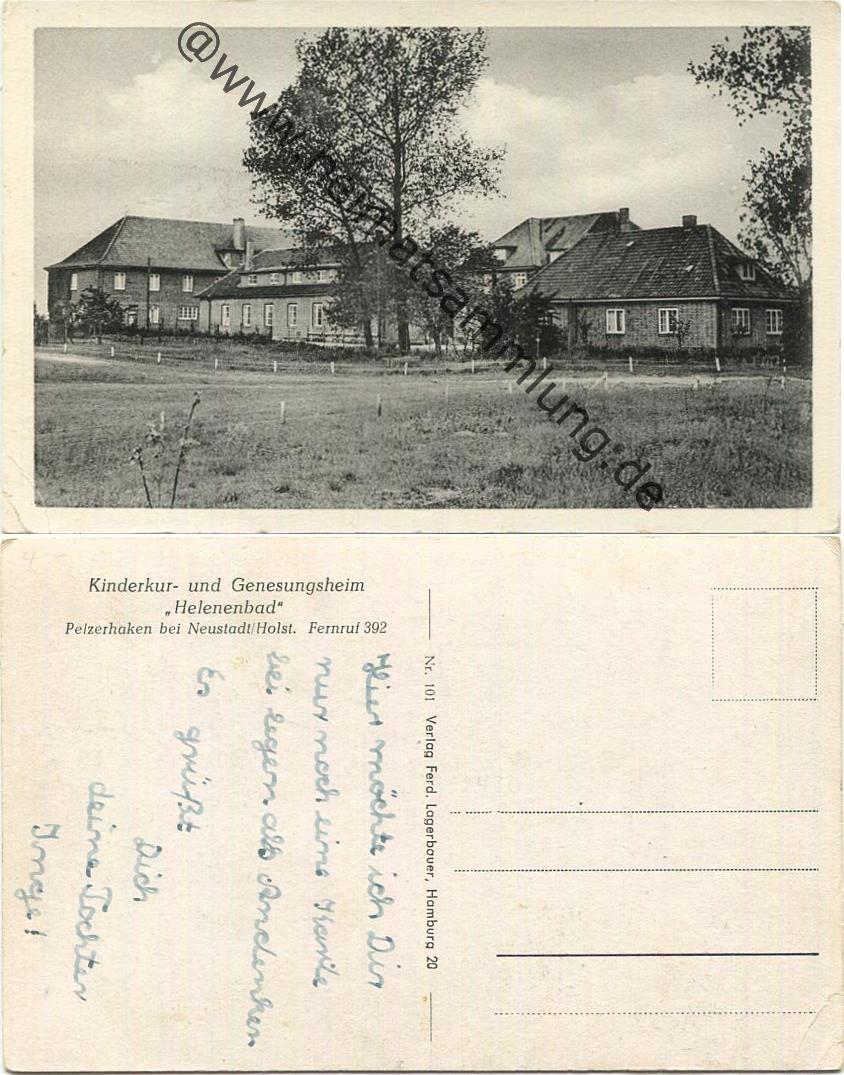 @www.heimatsammlung.de
4
Kinderkur- und Genesungsheim
„Helenenbad“
Pelzerhaken bei Neustadt/Holst. Fernruf 392
Hier möchte ich Dir
nur noch eine Karte
bei legen als Andenken
Es grüßt
Dich
deine Tochter
Inge!
Nr. 101 Verlag Ferd. Lagerbauer, Hamburg 20